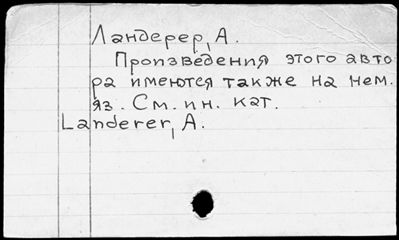 Ландерер, А.
Произведения этого авто
ра имеются также на нем.
яз. См. ин. кат.
Landerer, A.